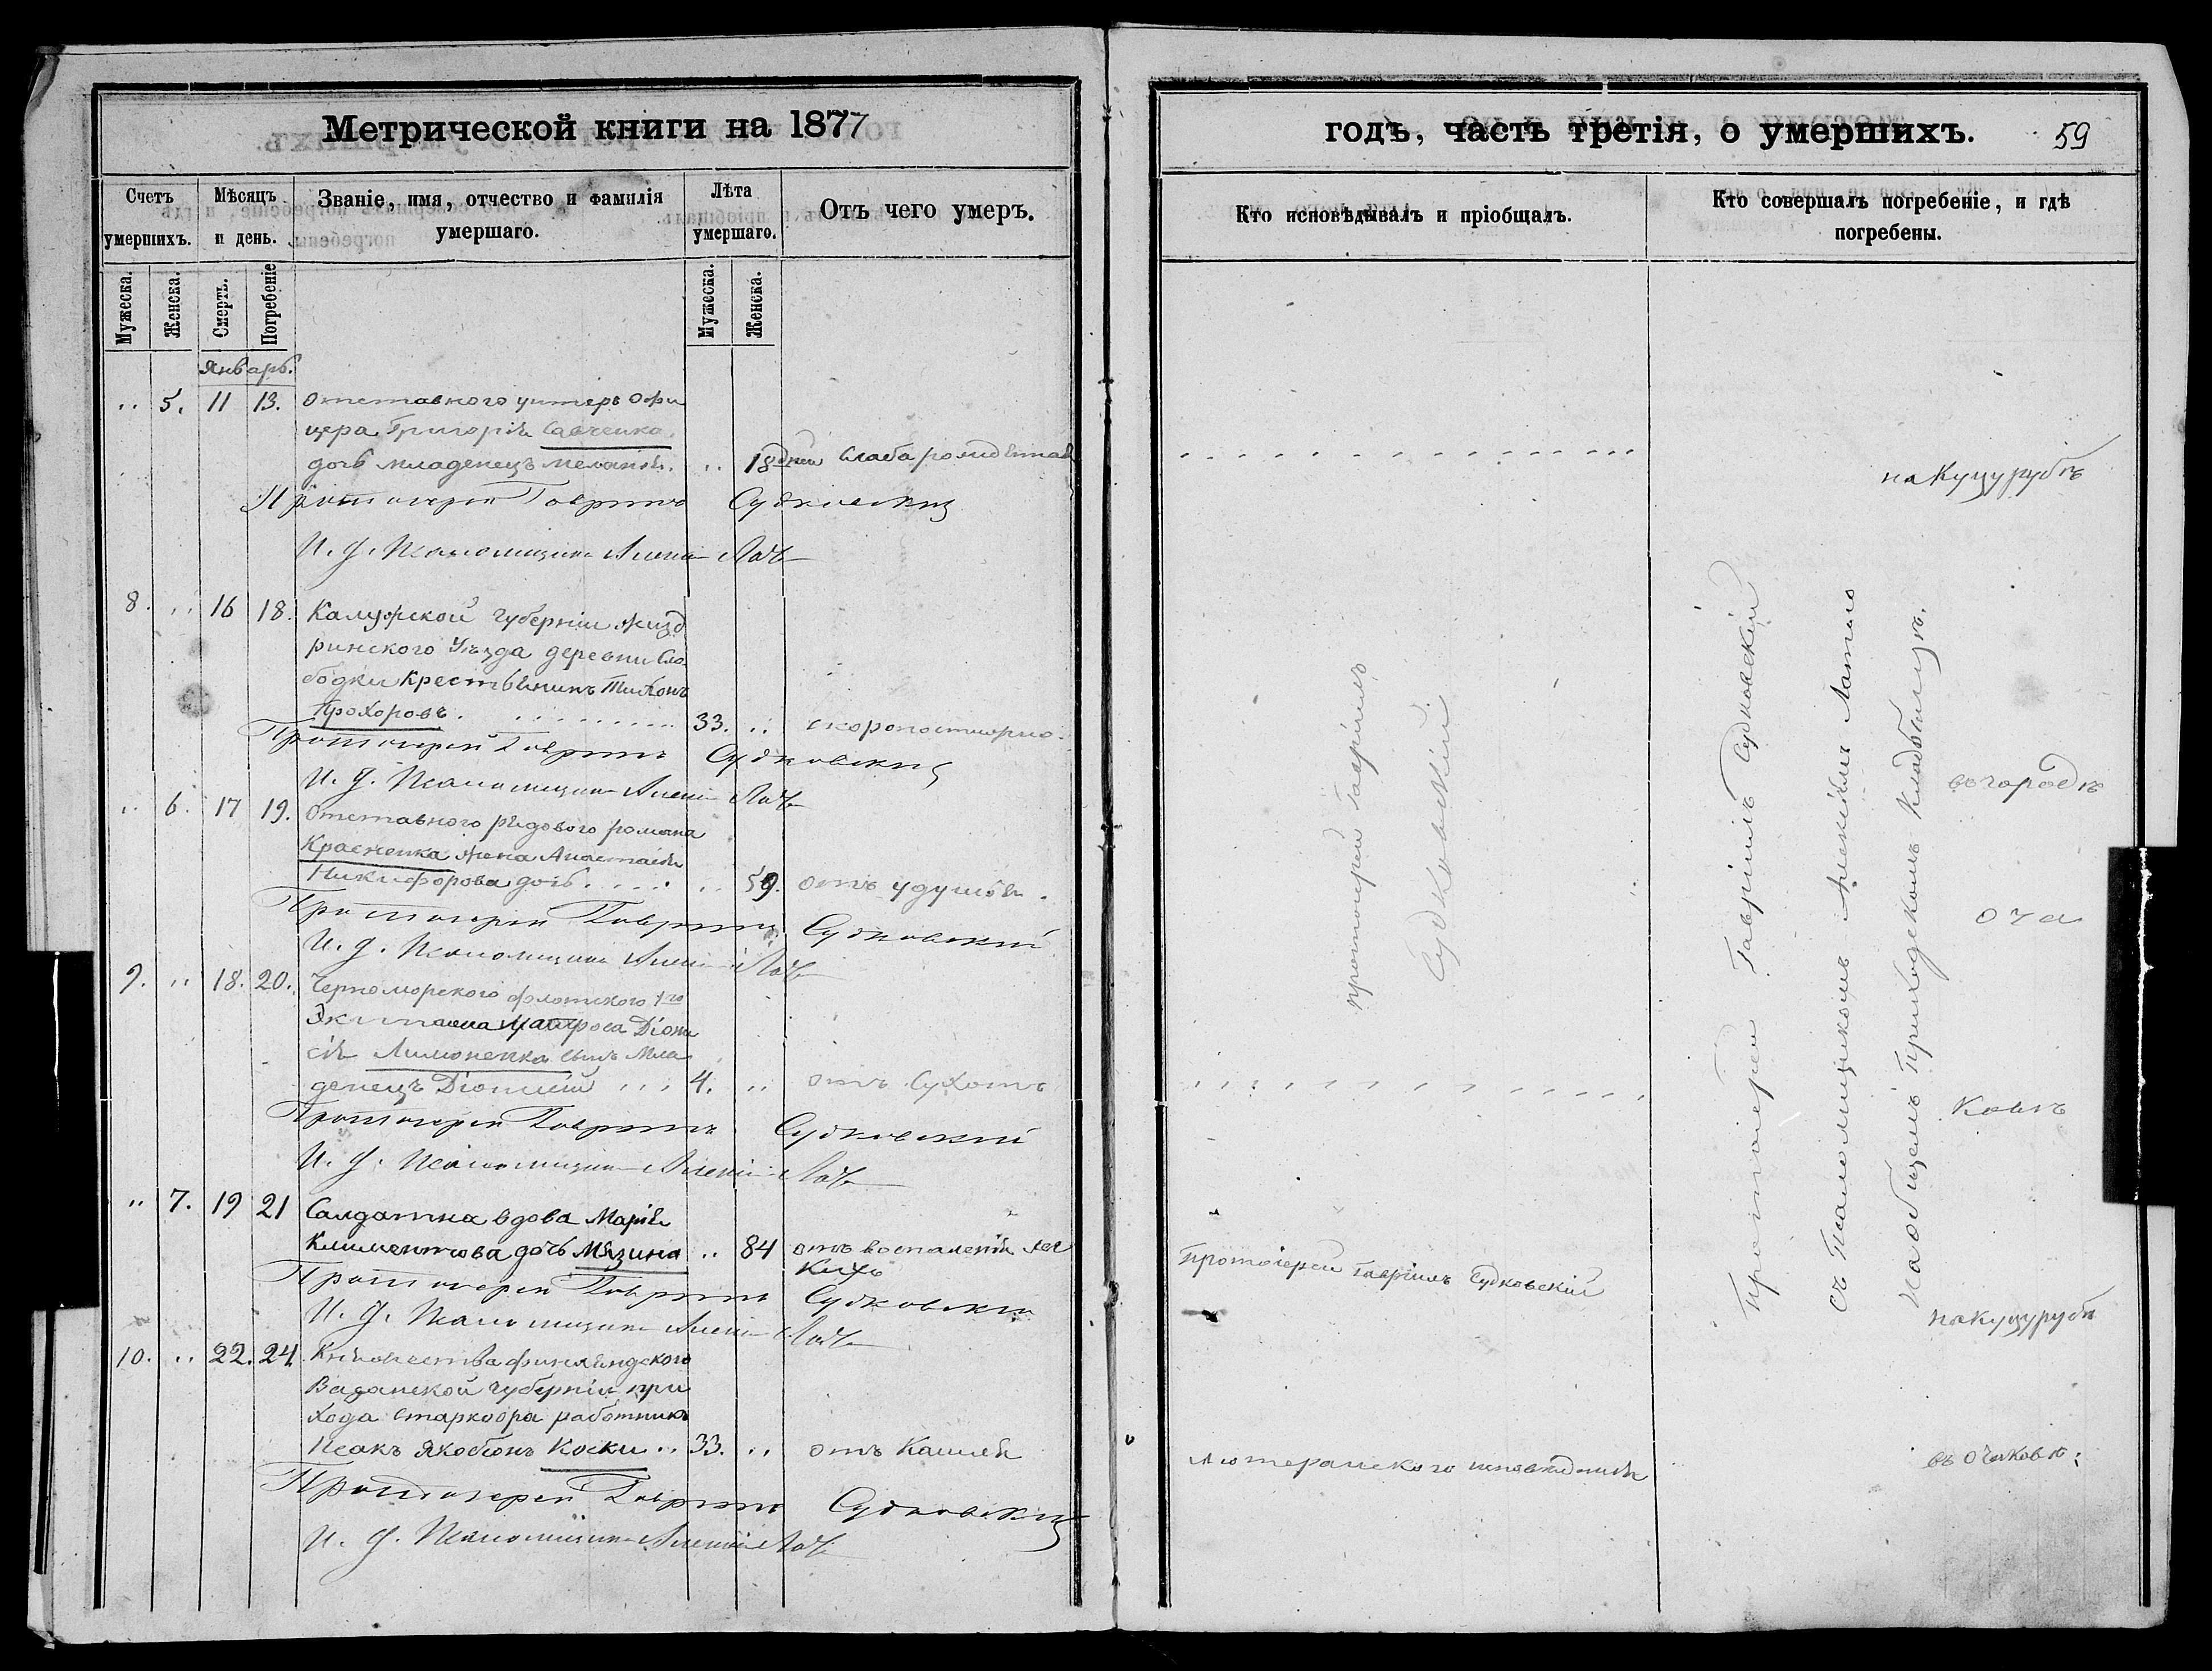 Метрической книги на 1877
Счетъ умершихъ.
Мѣсяцъ и день.
Званіе, имя, отчество и фамилія умершаго.
Лѣта умершаго.
Отъ чего умеръ.
Мужеска.
Женска.
Смерть.
Погребеніе
Мужеска.
Женска.
Январь.
5. 11 13. Отставного унтеръ офи
цера Григорія Савченка
дочь младенецъ Меланія. 18 дней Слаборожденная
Протоіерей Гавріилъ Судковскій
И. д. Псаломщика Алексій
8. 16 18. Калужской губерніи Жизд
ринского Уѣзда деревни Сло
бодки Крестьянинъ Тихонъ
Прохоровъ. 33. скоропостижно.
Протоіерей Гавріилъ Судковскій
И. д. Псаломщика Алексій
6. 17 19. Отставного рядового Романа
Красненка жена Анастасія
Никифорова дочь 59. отъ удушья.
Протоіерей Гавріилъ Судковскій
И. д. Псаломщика Алексій
9. 18. 20. Черноморского флотского 1го
Экипажа Матроса Діони
сія Лимоненка сынъ Мла
денецъ Діонисій 4. отъ Сухотъ
Протоіерей Гавріилъ Судковскій
И. д. Псаломщика Алексій
7. 19 21 Салдатка вдова Марія
Климентова дочь Мязина 84 отъ воспаленія лег
кихъ
Протоіерей Гавріилъ Судковскій
И. д. Псаломщика Алексій
10. 22. 24. Княжества финляндского
Вазанской губерніи при
хода Старкоора работникъ
Исакъ Якобсонъ Коски 33. отъ Кашля
Протоіерей Гавріилъ Судковскій
И. д. Псаломщика Алексій
годъ, часть третія, о умершихъ. 59
Кто исповѣдывалъ и пріобщалъ.
Кто совершалъ погребеніе, и гдѣ погребены.
на Куцурубѣ
протоіерей Гавріилъ
Судковскій
Протоіерей Гавріилъ Судковскій
съ Псаломщикомъ Алексіемъ
на общемъ Приходскомъ Кладбищѣ.
въ городѣ
Оча
ковѣ
протоіерей Гавріилъ Судковскій
на Куцурубѣ
лютеранского исповѣданія
въ Очаковѣ.